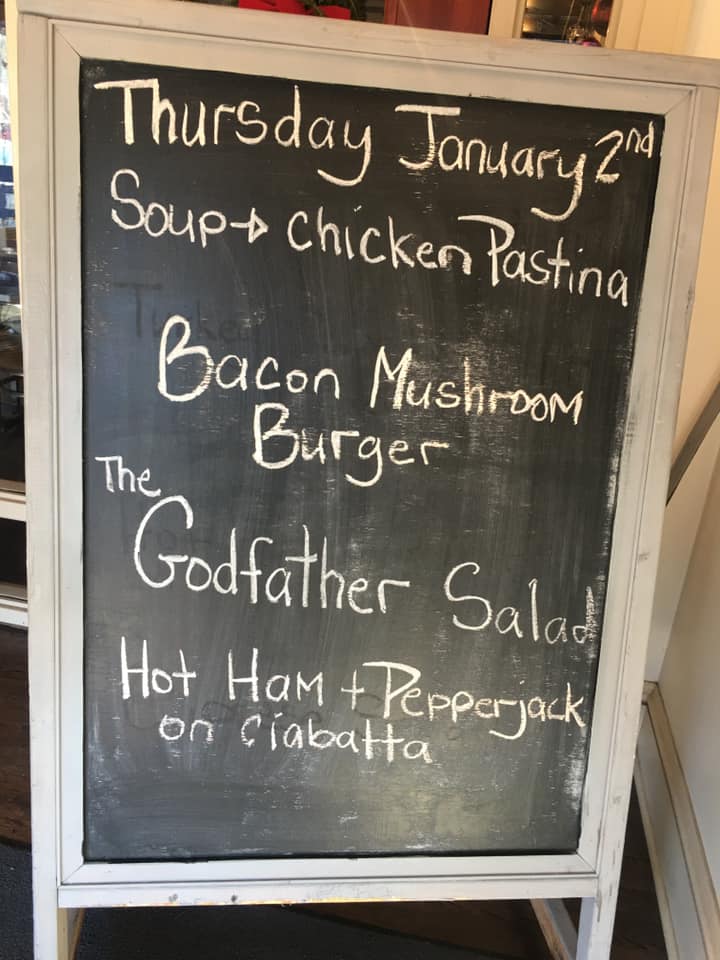 Thursday January 2nd
Soup→ Chicken Pastina
Bacon Mushroom
Burger
The
Godfather Salad
Hot Ham + Pepperjack
on Ciabatta